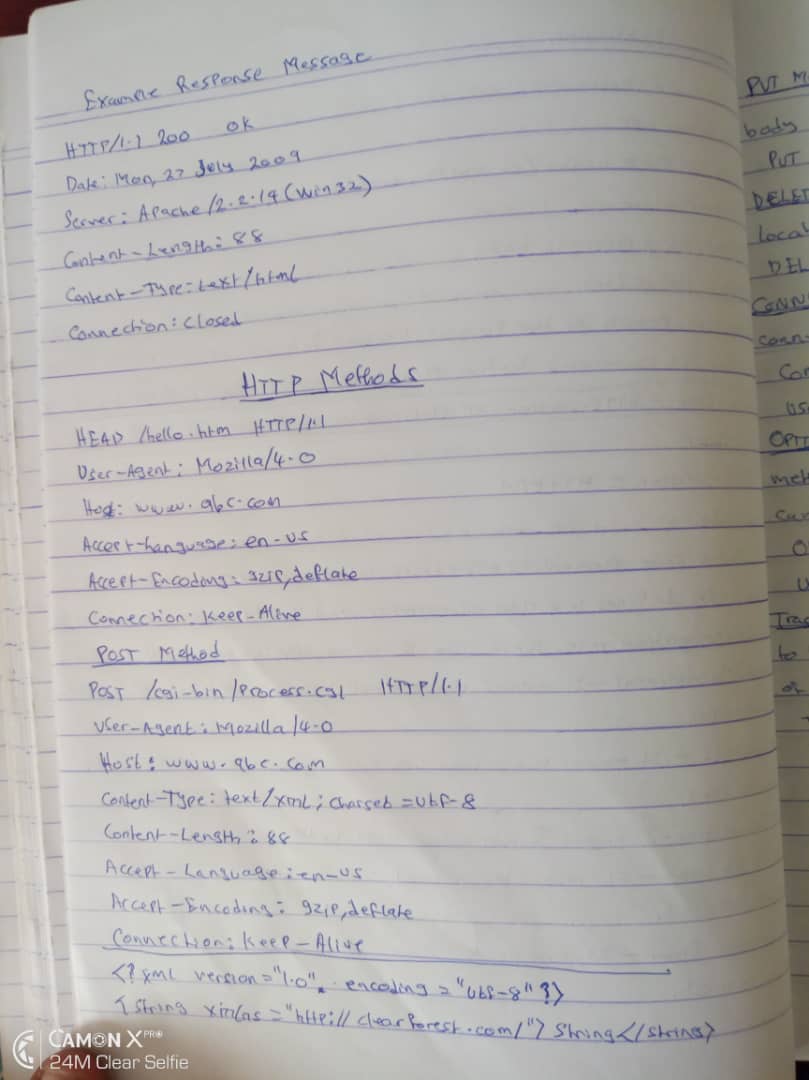 Example Response Message
HTTP/1.1 200 OK
Date: Mon, 27 July 2009
Server: Apache/2.2.14 (Win32)
Content-Length: 88
Content-Type: text/html
Connection: Closed
HTTP Methods
HEAD /hello.htm HTTP/1.1
User-Agent: Mozilla/4.0
Host: www.abc.com
Accept-Language: en-us
Accept-Encoding: gzip, deflate
Connection: Keep-Alive
POST Method
POST /cgi-bin/Process.cgi HTTP/1.1
User-Agent: Mozilla/4.0
Host: www.abc.com
Content-Type: text/xml; charset=utf-8
Content-Length: 88
Accept-Language: en-us
Accept-Encoding: gzip, deflate
Connection: Keep-Alive
<? xml version="1.0" encoding="utf-8" ?>
<string xmlns="http://clearforest.com/"> String</string>
PUT M
body
PUT
DELET
local
DEL
CONN
conn
Con
us
OPTI
met
cur
O
U
Trac
to
of
CAMON X PRO
24M Clear Selfie